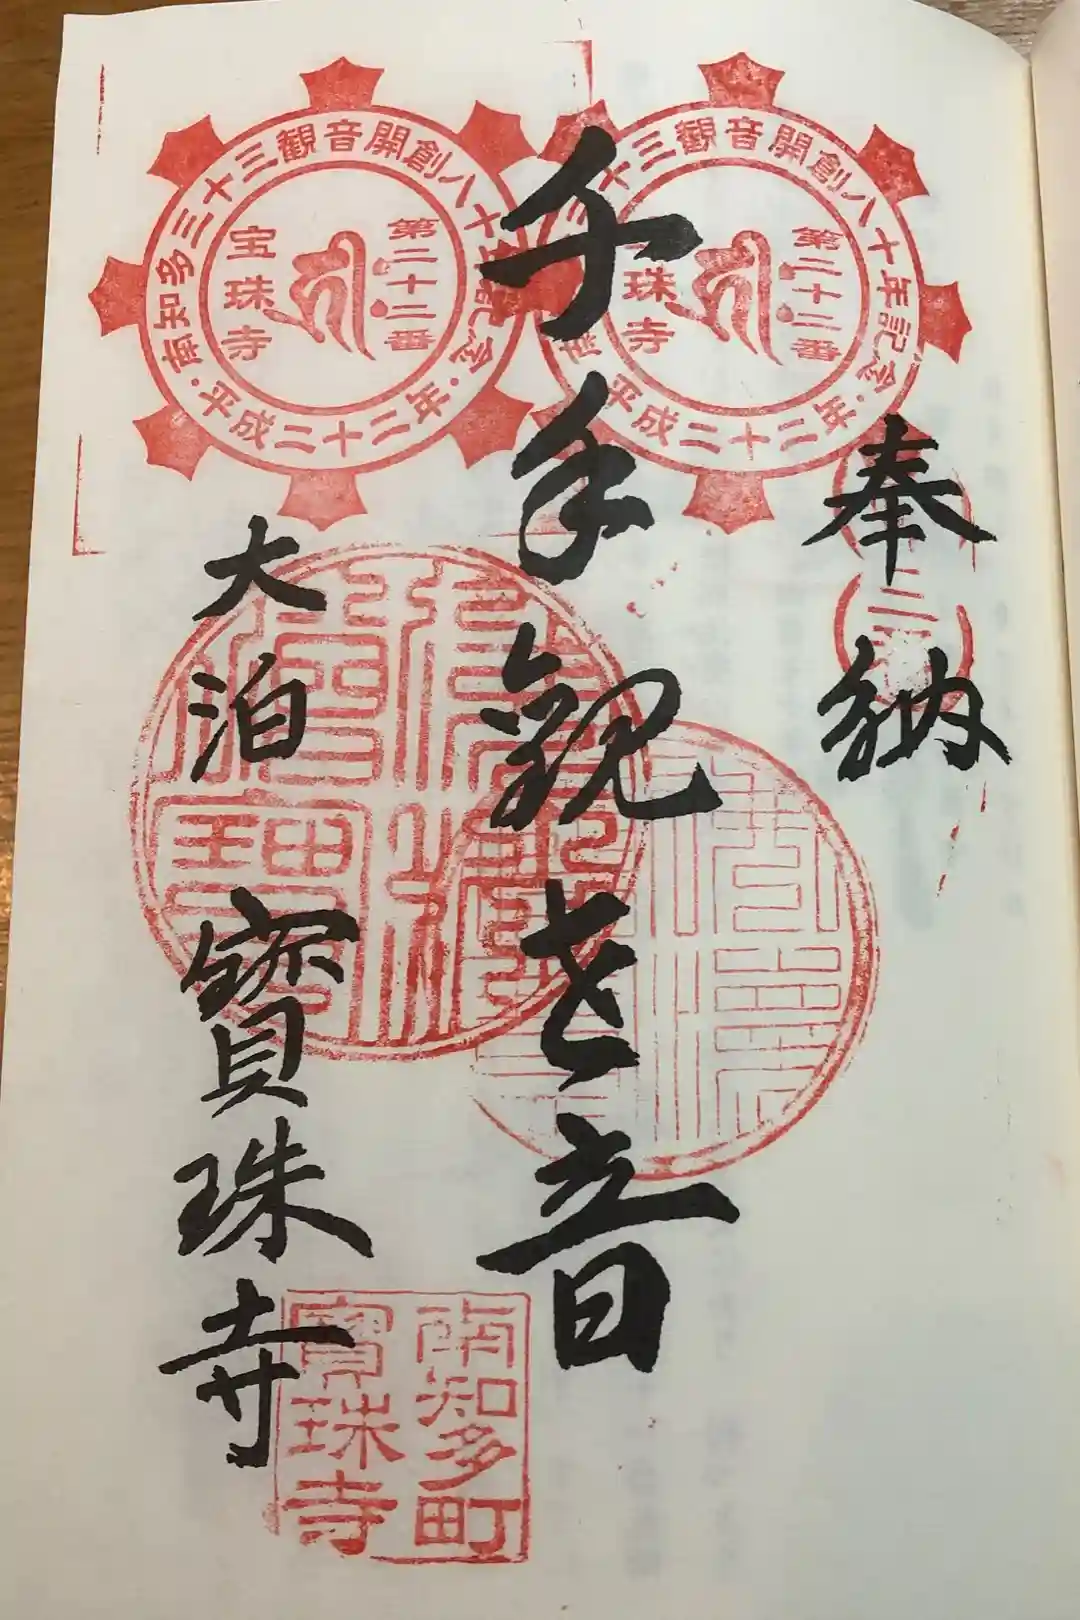 奉納
千手観世音
大泊 寶珠寺
南知多三十三観音開創八十年記念・平成二十二年・
第二十二番
宝珠寺
南知多三十三観音開創八十年記念・平成二十二年・
第二十二番
宝珠寺
南知多町
寶珠寺